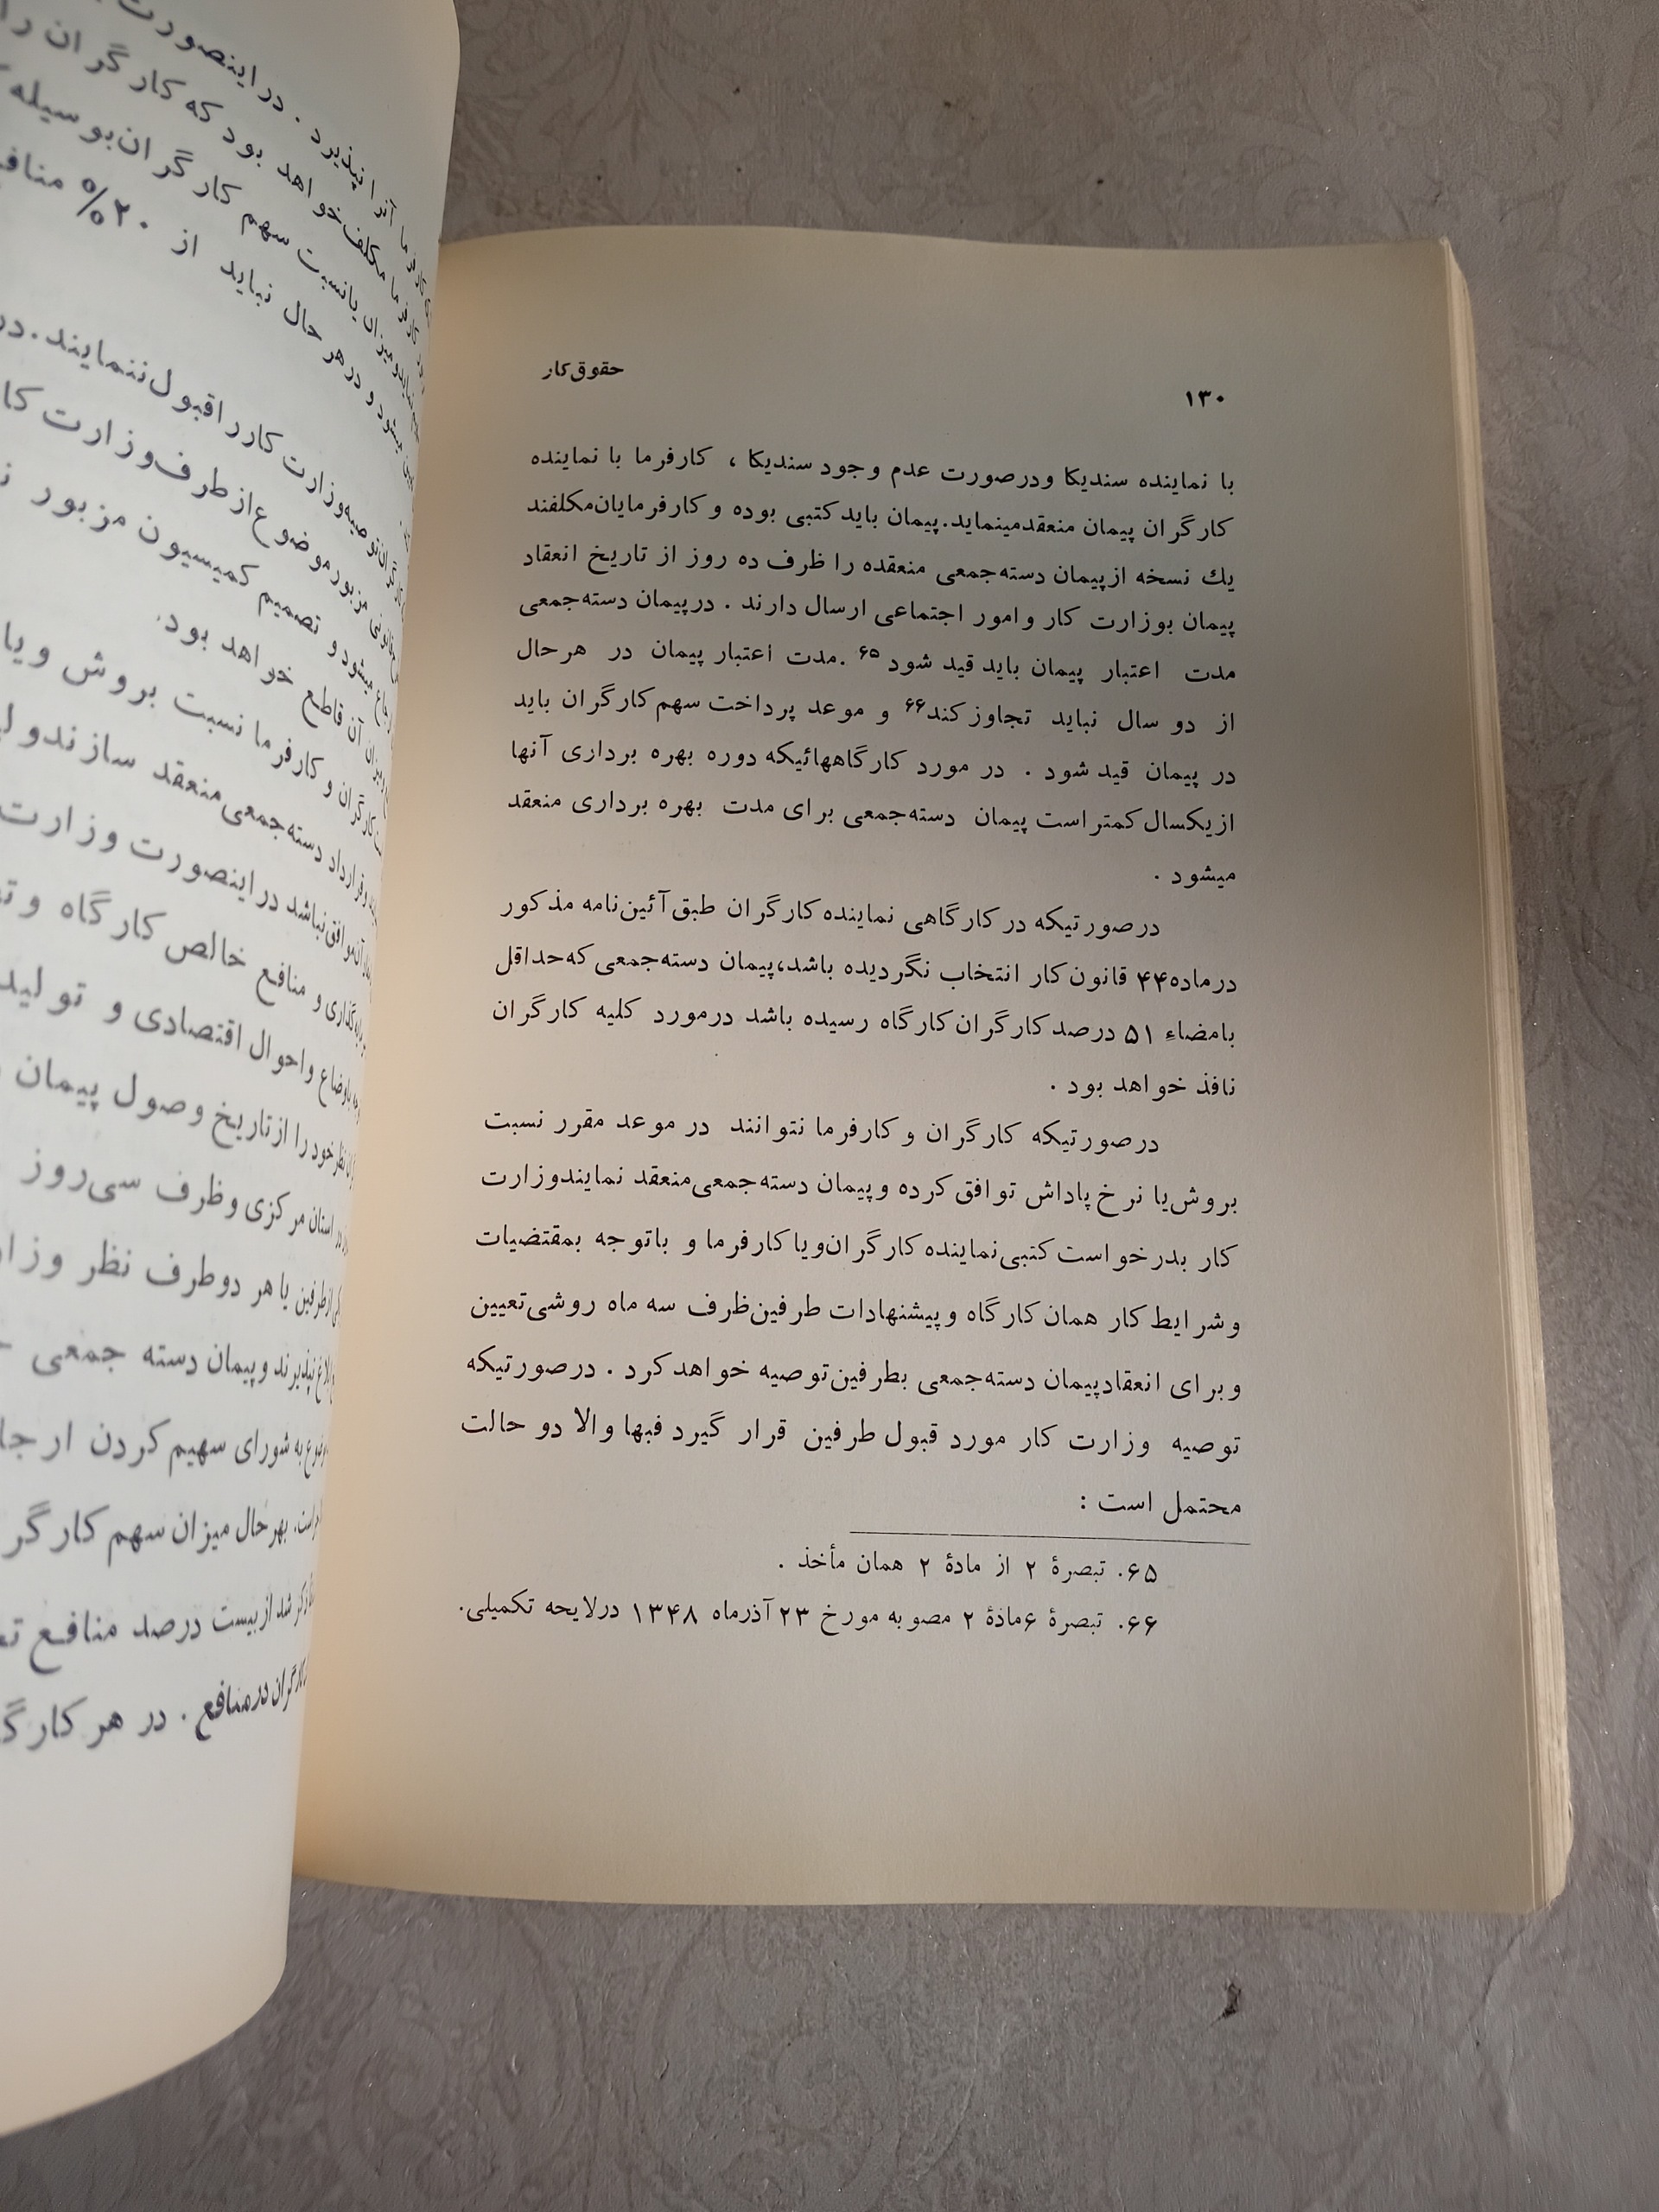 ۱۳۰
حقوق‌کار
با نماینده سندیکا ودرصورت عدم وجود سندیکا ، کارفرما با نماینده
کارگران پیمان منعقدمینماید.پیمان باید کتبی بوده و کارفرمایان‌مکلفند
یك نسخه ازپیمان دسته‌جمعی منعقده را ظرف ده روز از تاریخ انعقاد
پیمان بوزارت کار وامور اجتماعی ارسال دارند . درپیمان دسته‌جمعی
مدت اعتبار پیمان باید قید شود۶۵ .مدت اعتبار پیمان در هرحال
از دو سال نباید تجاوزکند۶۶ و موعد پرداخت سهم‌کارگران باید
در پیمان قید شود . در مورد کارگاههائیکه دوره بهره برداری آنها
ازیکسال کمتراست پیمان دسته‌جمعی برای مدت بهره برداری منعقد
میشود .
درصورتیکه در کارگاهی نماینده کارگران طبق‌آئین‌نامه مذکور
درماده۴۴ قانون‌کار انتخاب نگردیده باشد،پیمان دسته‌جمعی که‌حداقل
بامضاء ۵۱ درصد کارگران‌کارگاه رسیده باشد درمورد کلیه کارگران
نافذ خواهد بود .
درصورتیکه کارگران و کارفرما نتوانند در موعد مقرر نسبت
بروش‌یا نرخ پاداش توافق‌کرده وپیمان دسته‌جمعی‌منعقد نمایندوزارت
کار بدرخواست کتبی‌نماینده کارگران‌ویا کارفرما و باتوجه بمقتضیات
وشرایط کار همان کارگاه وپیشنهادات طرفین‌ظرف سه ماه روشی‌تعیین
وبرای انعقادپیمان دسته‌جمعی بطرفین‌توصیه خواهدکرد . درصورتیکه
توصیه وزارت کار مورد قبول طرفین قرار گیرد فبها والا دو حالت
محتمل است :
۶۵. تبصرهٔ ۲ از مادهٔ ۲ همان مأخذ .
۶۶. تبصرهٔ ۶مادهٔ ۲ مصوبه مورخ ۲۳ آذرماه ۱۳۴۸ درلایحه تکمیلی.
آنرا نپذیرد . دراینصورت
مکلف‌خواهد بود که کارگران را
یانسبت سهم کارگران‌بوسیله
و درهر حال نباید از ۲۰% منافع
توصیه‌وزارت کاررا قبول‌ننمایند.در
مزبورموضوع ازطرف‌وزارت کار
میشود و تصمیم کمیسیون مزبور
آن قاطع خواهد بود.
کارگران و کارفرما نسبت بروش ویا
قرارداد دسته‌جمعی‌منعقد سازندو
موافق‌نباشد دراینصورت وزارت
و منافع خالص کارگاه و
واحوال اقتصادی و تولید
نظرخود را ازتاریخ وصول پیمان
استان مرکزی وظرف سی‌روز
ازطرفین یا هر دوطرف نظر
نپذیرند وپیمان دسته جمعی
به شورای سهیم کردن ارجاع
است. بهرحال میزان سهم کارگر
شد ازبیست درصد منافع
کارگران درمنافع . در هر